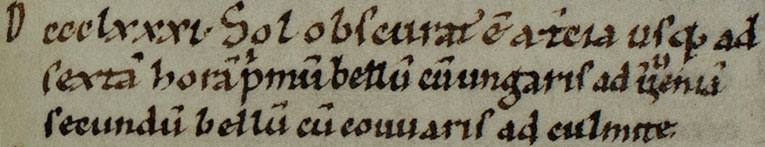 D ccclxxxi· Sol obscurat᷒ ē a t̄cia usq; ad
sextā horā p̄mū bellū cū ungaris ad uueniā
secundū bellū cū couuaris ad culmite·